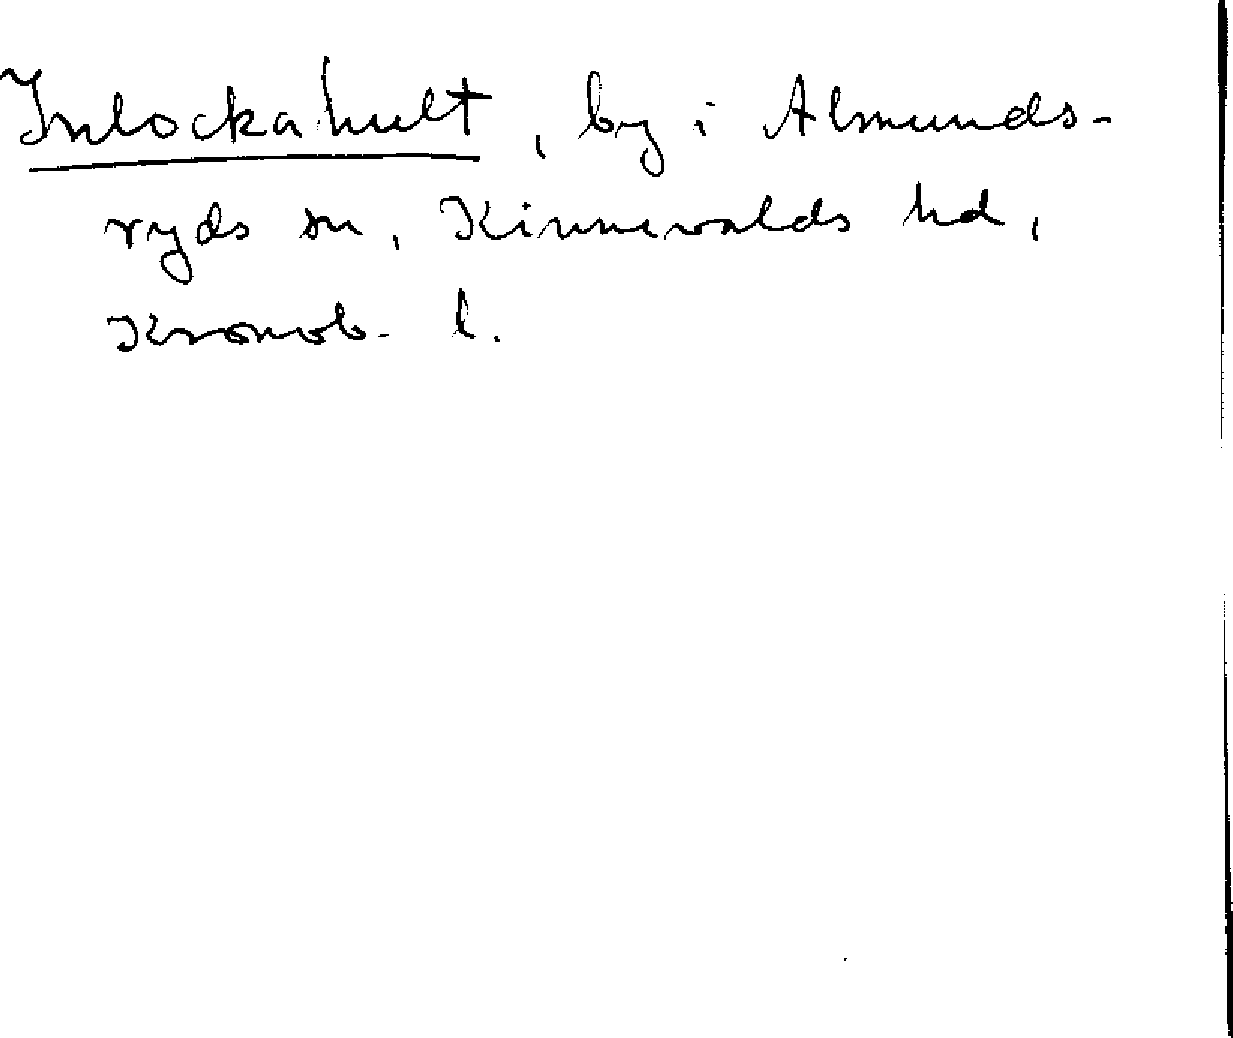 Inlockahult, by i Almunds-
ryds sn, Kinnevalds hd,
Kronob. l.